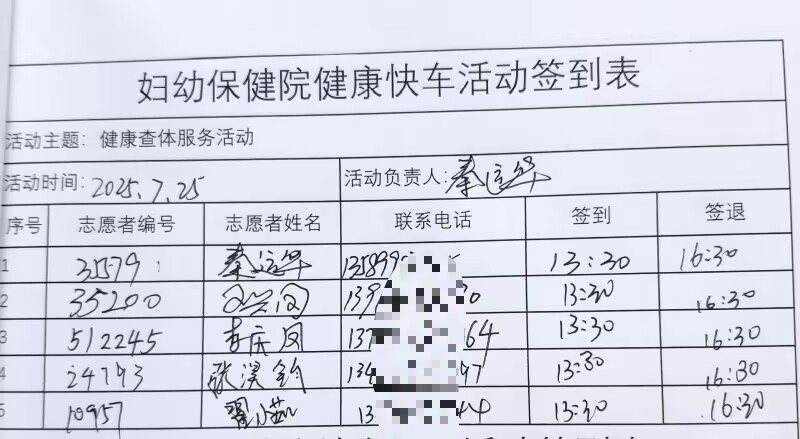 妇幼保健院健康快车活动签到表
活动主题：健康查体服务活动
活动时间：2025.7.25 活动负责人：秦运华
序号 志愿者编号 志愿者姓名 联系电话 签到 签退
1 31579 秦运华 135899 13:30 16:30
2 35200 139 30 13:30 16:30
3 512245 李庆凤 137 64 13:30 16:30
4 24793 张淏钧 134 97 13:30 16:30
5 10957 13 44 13:30 16:30